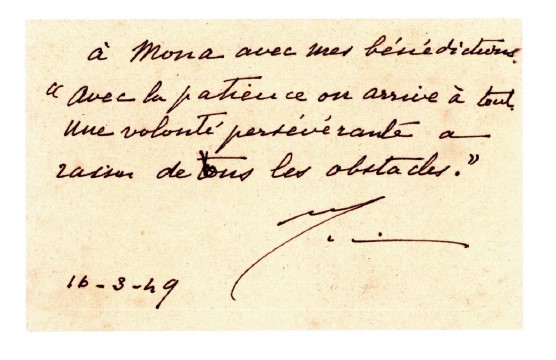 à Mona avec mes bénédictions.
"Avec la patience on arrive à tout.
Une volonté persévérante a
raison de tous les obstacles."
16-3-49